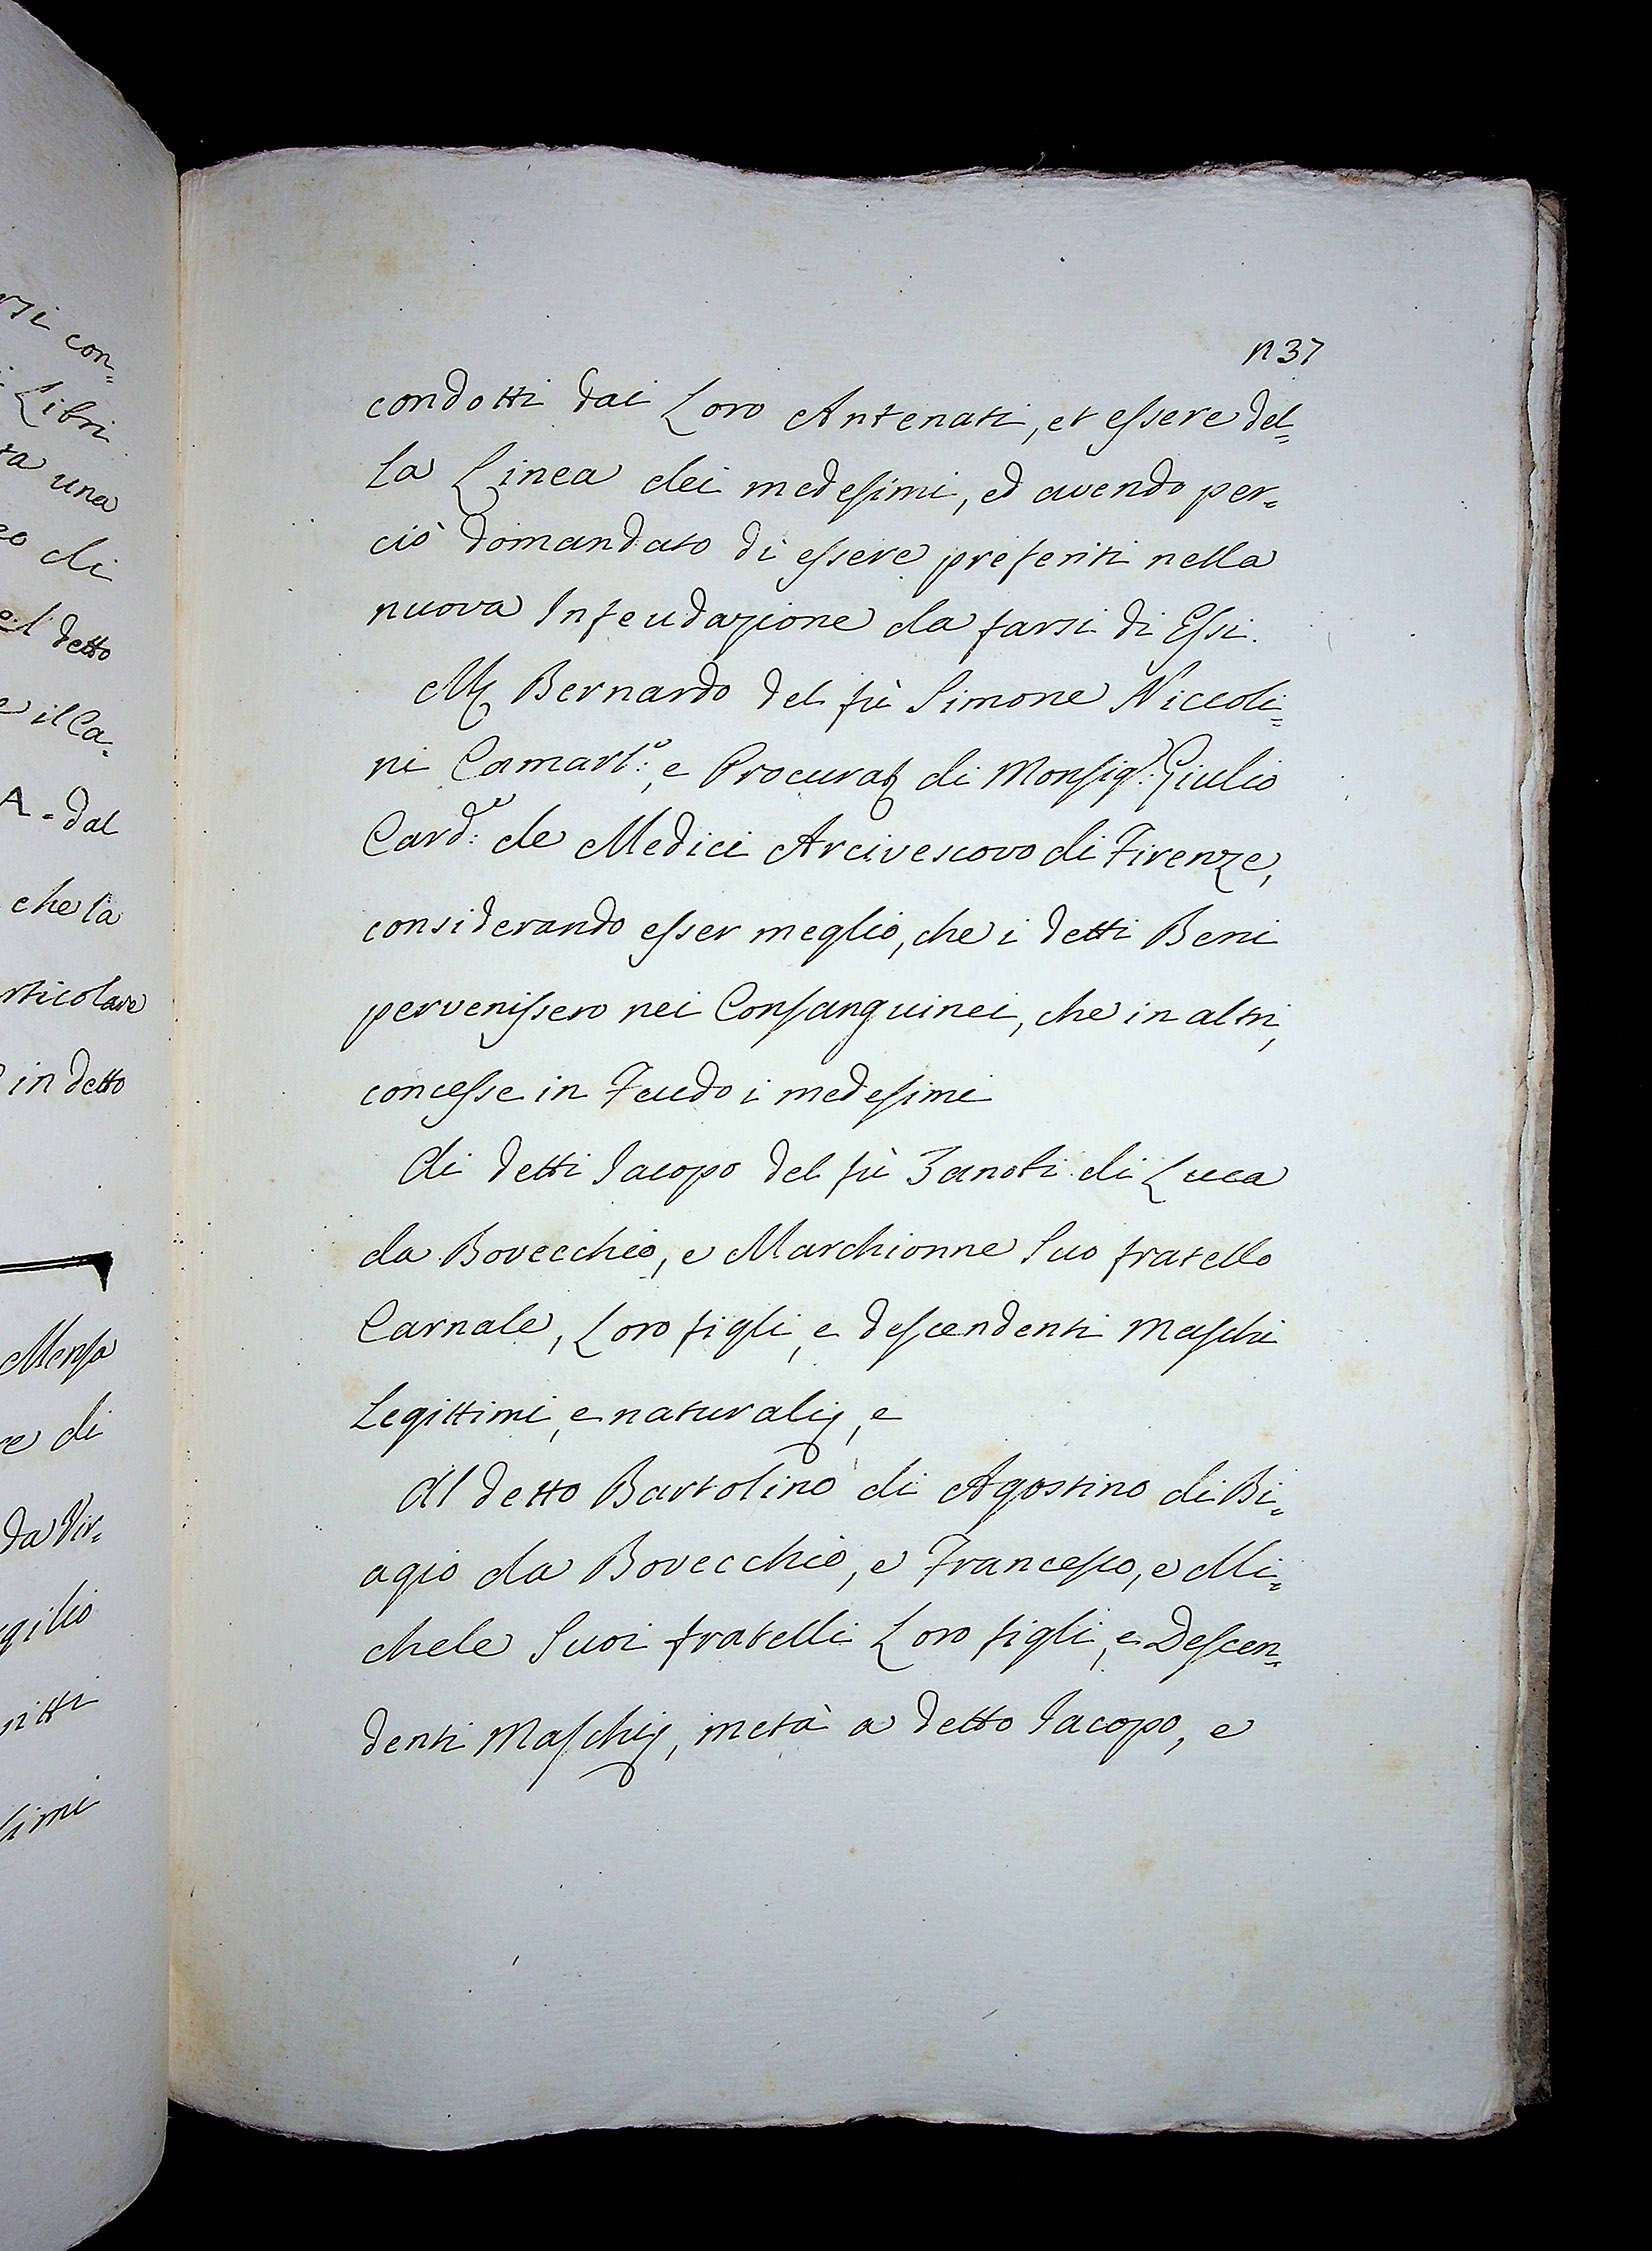 n 37
condotti dai Loro Antenati, et essere del=
la Linea dei medesimi, ed avendo per=
ciò domandato di essere preferiti nella
nuova Infeudazione da farsi di Essi.
Mr Bernardo del fù Simone Niccoli=
ni Camarl.o, e Procurat di Monsig.r Giulio
Card.e de Medici Arcivescovo di Firenze,
considerando esser meglio, che i detti Beni
pervenissero nei Consanguinei, che in altri,
concesse in Feudo i medesimi
Ai detti Iacopo del fù Zanobi di Luca
da Bovecchio, e Marchionne Suo fratello
Carnale, Loro figli, e descendenti Maschi
Legittimi, e naturalij, e
Al detto Bartolino di Agostino di Bi=
agio da Bovecchio, e Francesco, e Mi=
chele Suoi fratelli Loro figli, e Descen=
denti Maschij, metà a detto Iacopo, e
rsi con=
Libri
ta una
di
el detto
e il Ca=
A. dal
che la
rticolare
in detto
Mensa
re di
da Vir=
gilio
nitti
simi